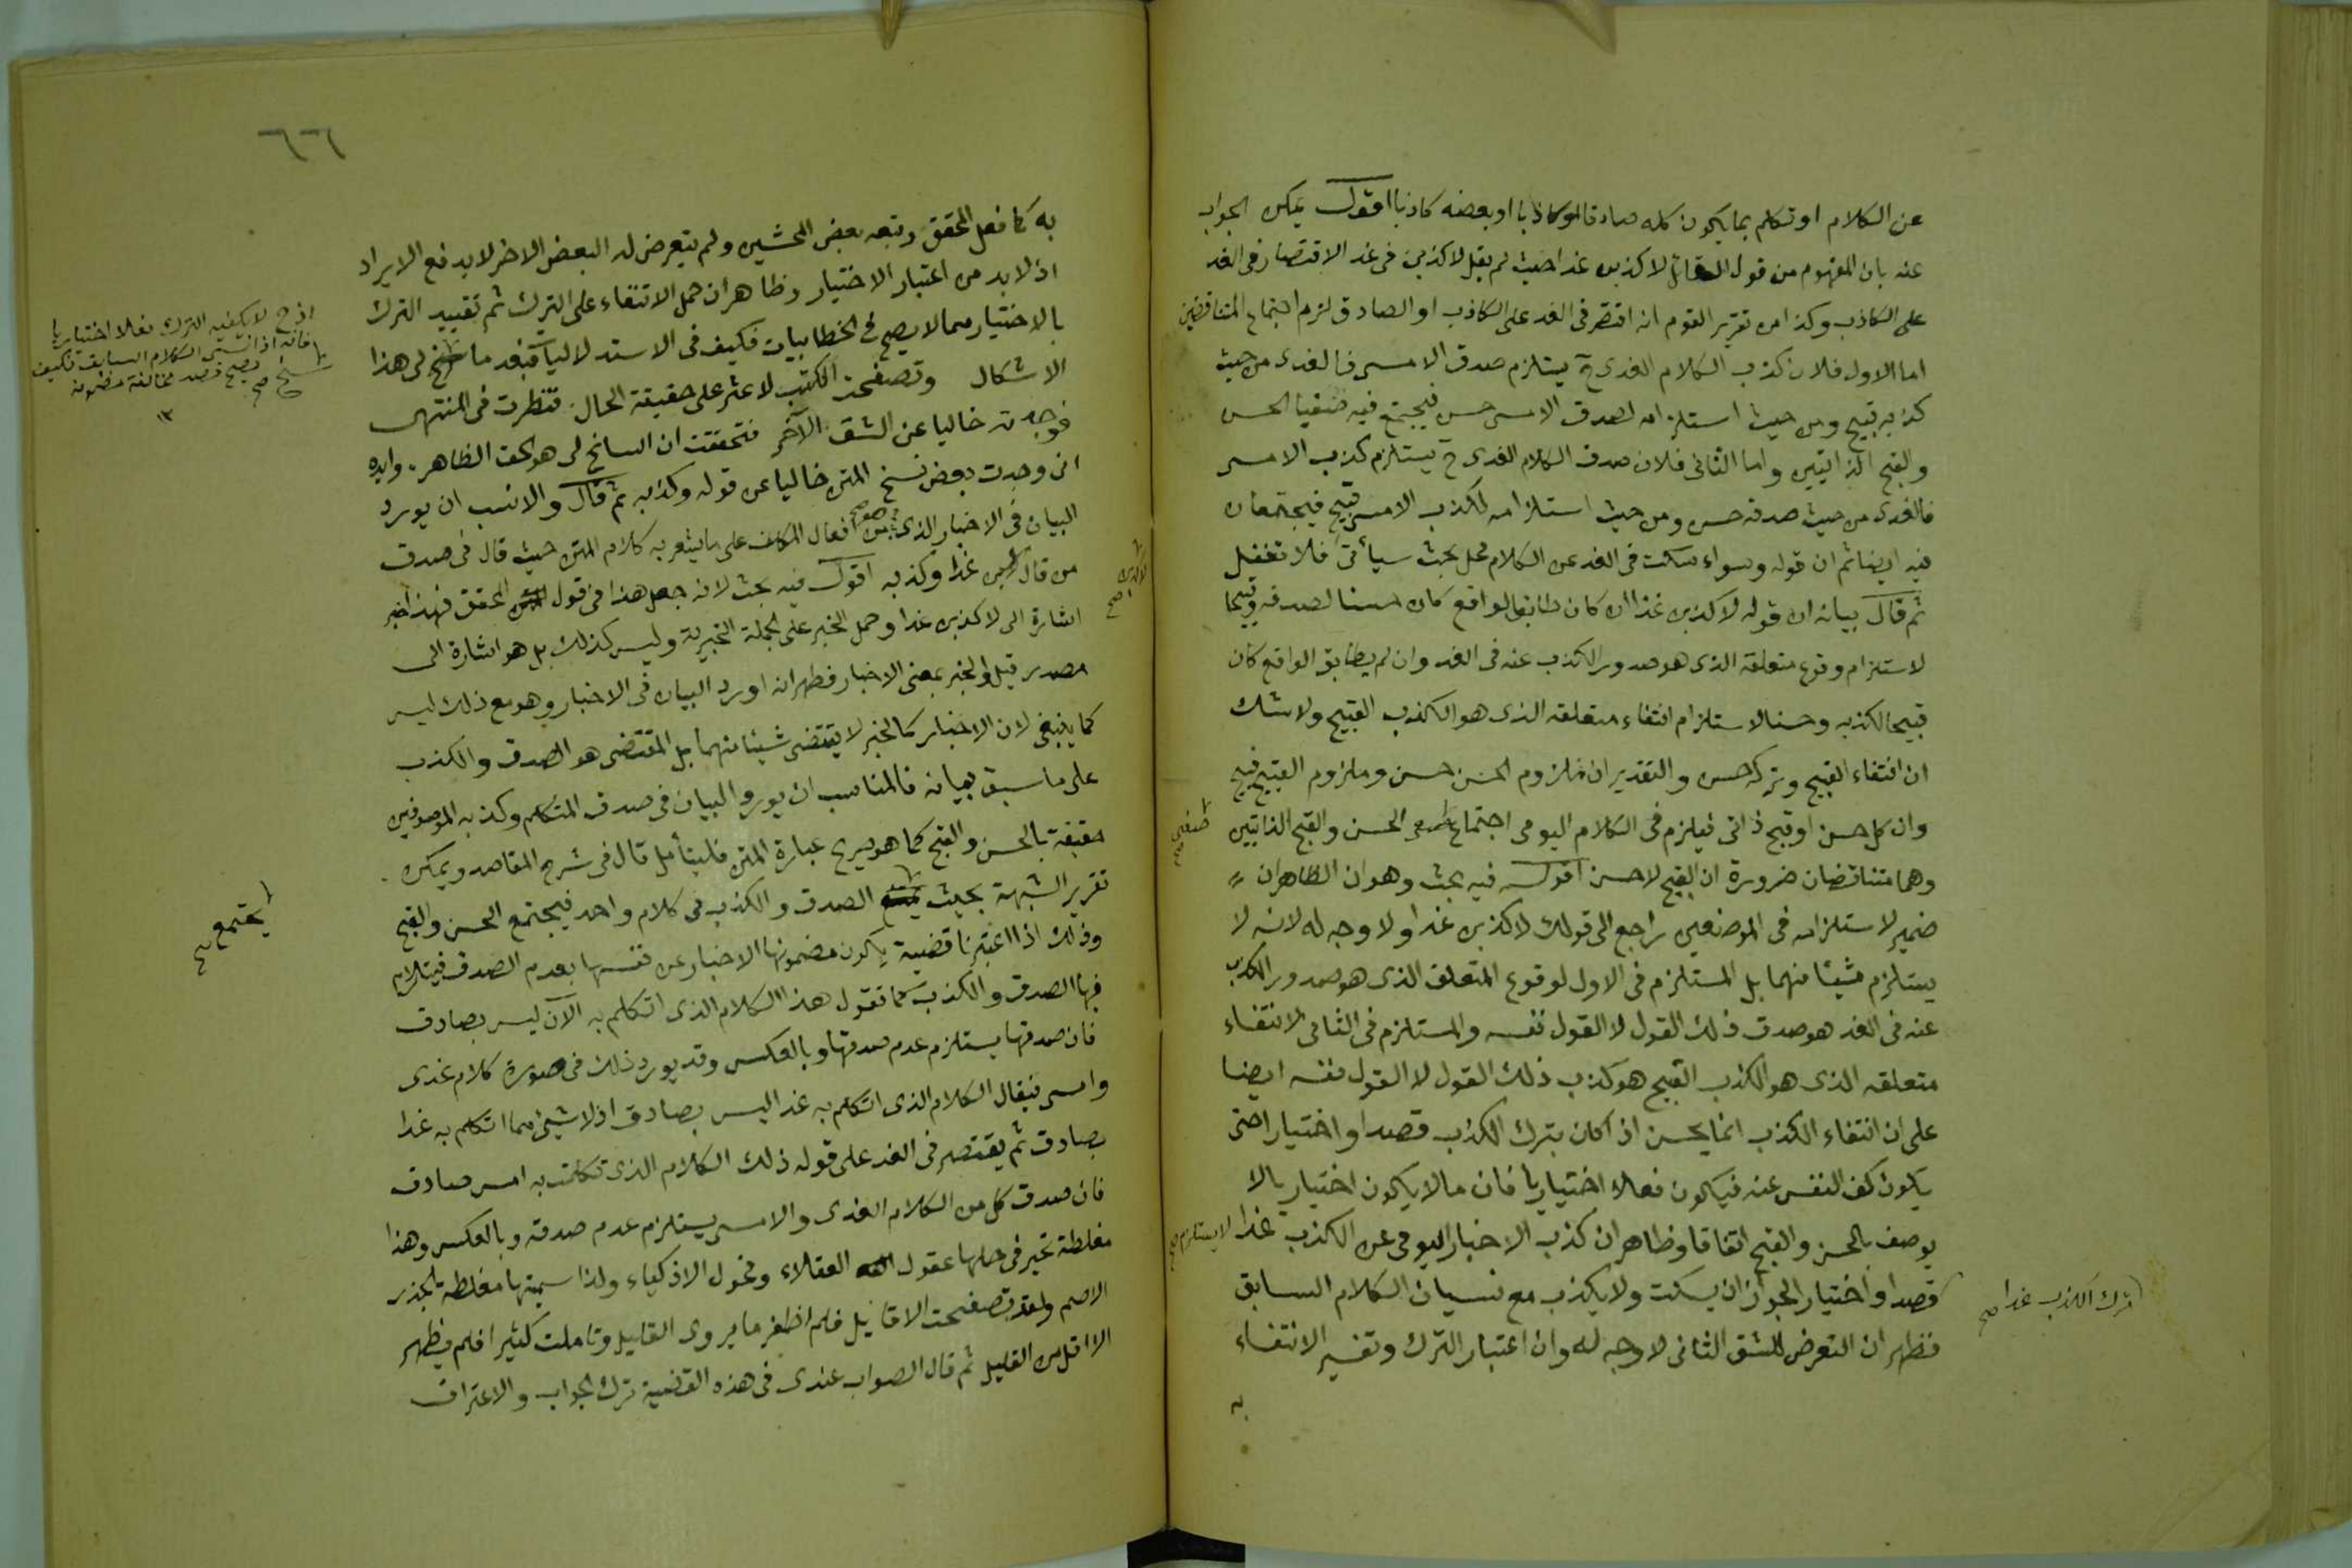 عن الكلام او تكلم بما يكون كله صادقا او كاذبا او بعضه كاذبا اقول يمكن الجواب
عنه بان المفهوم من قول القائل لاكذبن غدا حيث لم يقل لاكذبن في غد الاقتصار في الغد
على الكاذب وكذا من تقرير القوم انه اقتصر في الغد على الكاذب او الصادق لزم اجتماع المتناقضين
اما الاول فلان كذب الكلام الغدى ح يستلزم صدق الامس فالغدى من حيث
كذبه قبيح ومن حيث استلزامه لصدق الامس حسن فيجتمع فيه صفتا الحسن
والقبح الذاتيين واما الثاني فلان صدق الكلام الغدى ح يستلزم كذب الامس
فالغدى من حيث صدقه حسن ومن حيث استلزامه لكذب الامس قبيح فيجتمعان
فيه ايضا ثم ان قوله وسواء سكت في الغد عن الكلام محل بحث سيأتى فلا تغفل
ثم قال بيانه ان قوله لاكذبن غدا ان كان طابق الواقع كان حسنا لصدقه وقبيحا
لاستلزام وقوع متعلقه الذى هو صدور الكذب عنه في الغد وان لم يطابق الواقع كان
قبيحا لكذبه وحسنا لاستلزام انتفاء متعلقه الذى هو الكذب القبيح ولا شك
ان انتفاء القبيح وتركه حسن والتقدير ان ملزوم الحسن حسن وملزوم القبيح قبيح
وان كل حسن او قبح ذاتى فيلزم في الكلام اليومى اجتماع الحسن والقبح الذاتيين
وهما متناقضان ضرورة ان القبيح لاحسن اقول فيه بحث وهو ان الظاهر ان
ضمير لاستلزامه في الموضعين راجع الى قولك لاكذبن غدا ولا وجه له لانه لا
يستلزم شيئا منهما بل المستلزم في الاول لوقوع المتعلق الذى هو صدور الكذب
عنه في الغد هو صدق ذلك القول لا القول نفسه والمستلزم في الثانى لانتفاء
متعلقه الذى هو الكذب القبيح هو كذب ذلك القول لا القول نفسه ايضا
على ان انتفاء الكذب انما يحسن اذا كان بترك الكذب قصدا واختيارا حتى
يكون كف النفس عنه فيكون فعلا اختياريا فان ما لا يكون اختياريا لا
يوصف بالحسن والقبح اتفاقا وظاهر ان كذب الاخبار اليومى عن الكذب غدا لا يستلزم صح
ترك الكذب غدا صح
قصدا واختيارا لجواز ان يسكت ولا يكذب مع نسيان الكلام السابق
فظهر ان التعرض للشق الثانى لا وجه له وان اعتبار الترك وتفسير الانتفاء
به
٦٦
به كما فعل المحقق وتبعه بعض المحشين ولم يتعرض له البعض الاخر لا يدفع الايراد
اذ لا بد من اعتبار الاختيار وظاهر ان حمل الانتفاء على الترك ثم تقييد الترك
بالاختيار مما لا يصح في الخطابيات فكيف في الاستدلاليات فبعد ما سنح لى هذا
الاشكال وتصفحت الكتب لاعثر على حقيقة الحال فنظرت في المنتهى
فوجدته خاليا عن الشق الآخر فتحققت ان السانح لى هو الحق الظاهر وايده
انى وجدت بعض نسخ المتن خاليا عن قوله وكذبه ثم قال والانسب ان يورد
البيان في الاخبار الذى هو من افعال المكلف على ما يشعر به كلام المتن حيث قال في صدق
من قال لاكذبن غدا وكذبه اقول فيه بحث لانه جعل هذا في قول المحقق فهذا خبر
اشارة الى لاكذبن غدا وحمل الخبر على الجملة الخبرية وليس كذلك بل هو اشارة الى
مصدر قيل والخبر بمعنى الاخبار فظهر انه اورد البيان في الاخبار وهو مع ذلك ليس
كما ينبغى لان الاخبار كالخبر لا يقتضى شيئا منهما بل المقتضى هو الصدق والكذب
على ما سبق بيانه فالمناسب ان يورد البيان في صدق المتكلم وكذبه الموصوفين
حقيقة بالحسن والقبح كما هو صريح عبارة المتن فليتأمل قال في شرح المقاصد ويمكن
تقرير الشبهة بحيث يجتمع الصدق والكذب في كلام واحد فيجتمع الحسن والقبح
وذلك اذا اعتبرنا قضية يكون مضمونها الاخبار عن نفسها بعدم الصدق فيتلازم
فيها الصدق والكذب كما تقول هذا الكلام الذى اتكلم به الآن ليس بصادق
فان صدقها يستلزم عدم صدقها وبالعكس وقد يورد ذلك في صورة كلام غدى
وامسى فيقال الكلام الذى اتكلم به غدا ليس بصادق او لا شئ مما اتكلم به غدا
بصادق ثم يقتصر في الغد على قوله ذلك الكلام الذى تكلمت به امس صادق
فان صدق كل من الكلام الغدى والامسى يستلزم عدم صدقه وبالعكس وهذا
مغلطة تحير في حلها عقول العقلاء وفحول الاذكياء ولذا سميتها مغلطة الجذر
الاصم ولقد تصفحت الاقاويل فلم اظفر بما يروى الغليل وتاملت كثيرا فلم يظهر
الا اقل من القليل ثم قال الصواب عندى في هذه القضية ترك الجواب والاعتراف
اذ ح لا يكفيه الترك فعلا اختياريا
فانه اذا نسى الكلام السابق فكيف
يصح قصد مخالفة مضمونه
١٢
يجتمع صح